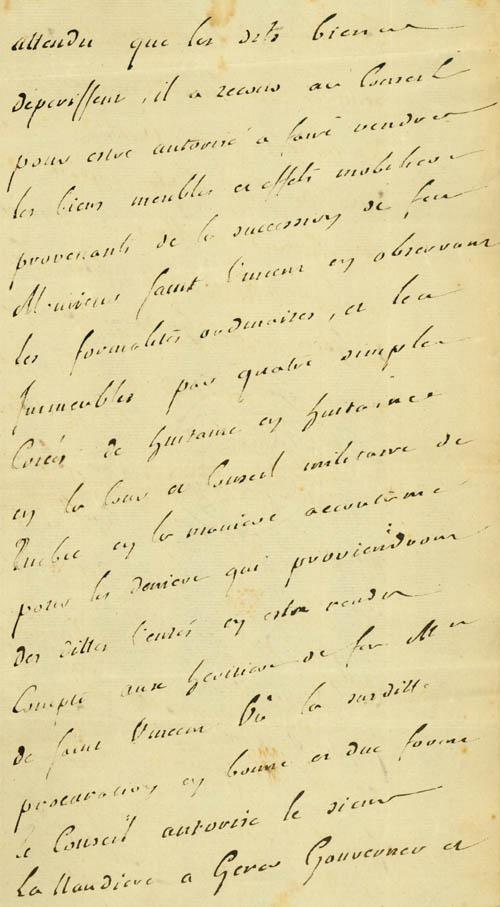 attendu que les dits biens
deperissent, il a recours au Conseil
pour estre autorisé a faire vendre
les biens meubles et effets mobiliers
provenants de la succession de feu
Saint Vincent en observant
les formalités ordinaires, et les
Immeubles par quatre simples
Criées de huitaine en huitaine
en la Cour et Conseil militaire de
Quebec en la maniere accoutumé
pour les deniers qui proviendront
des dittes Ventes en estre rendu
Compte aux heritiers de feu Mr
de Saint Vincent Vû la susditte
procuration en bonne et due forme
le Conseil autorise le sieur
La Naudiere a Gerer Gouverner et